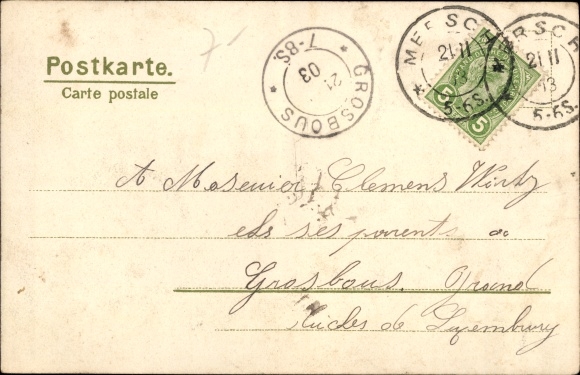 7-
Postkarte.
Carte postale
GROSBOUS
7-8S.
21
03
MERSCH
21 II
5-6S.
MERSCH
21 II
03
5-6S.
5
5
A Monsieur Clemens Wirtz
ses parents
Grosbous. Grand
de Luxemburg